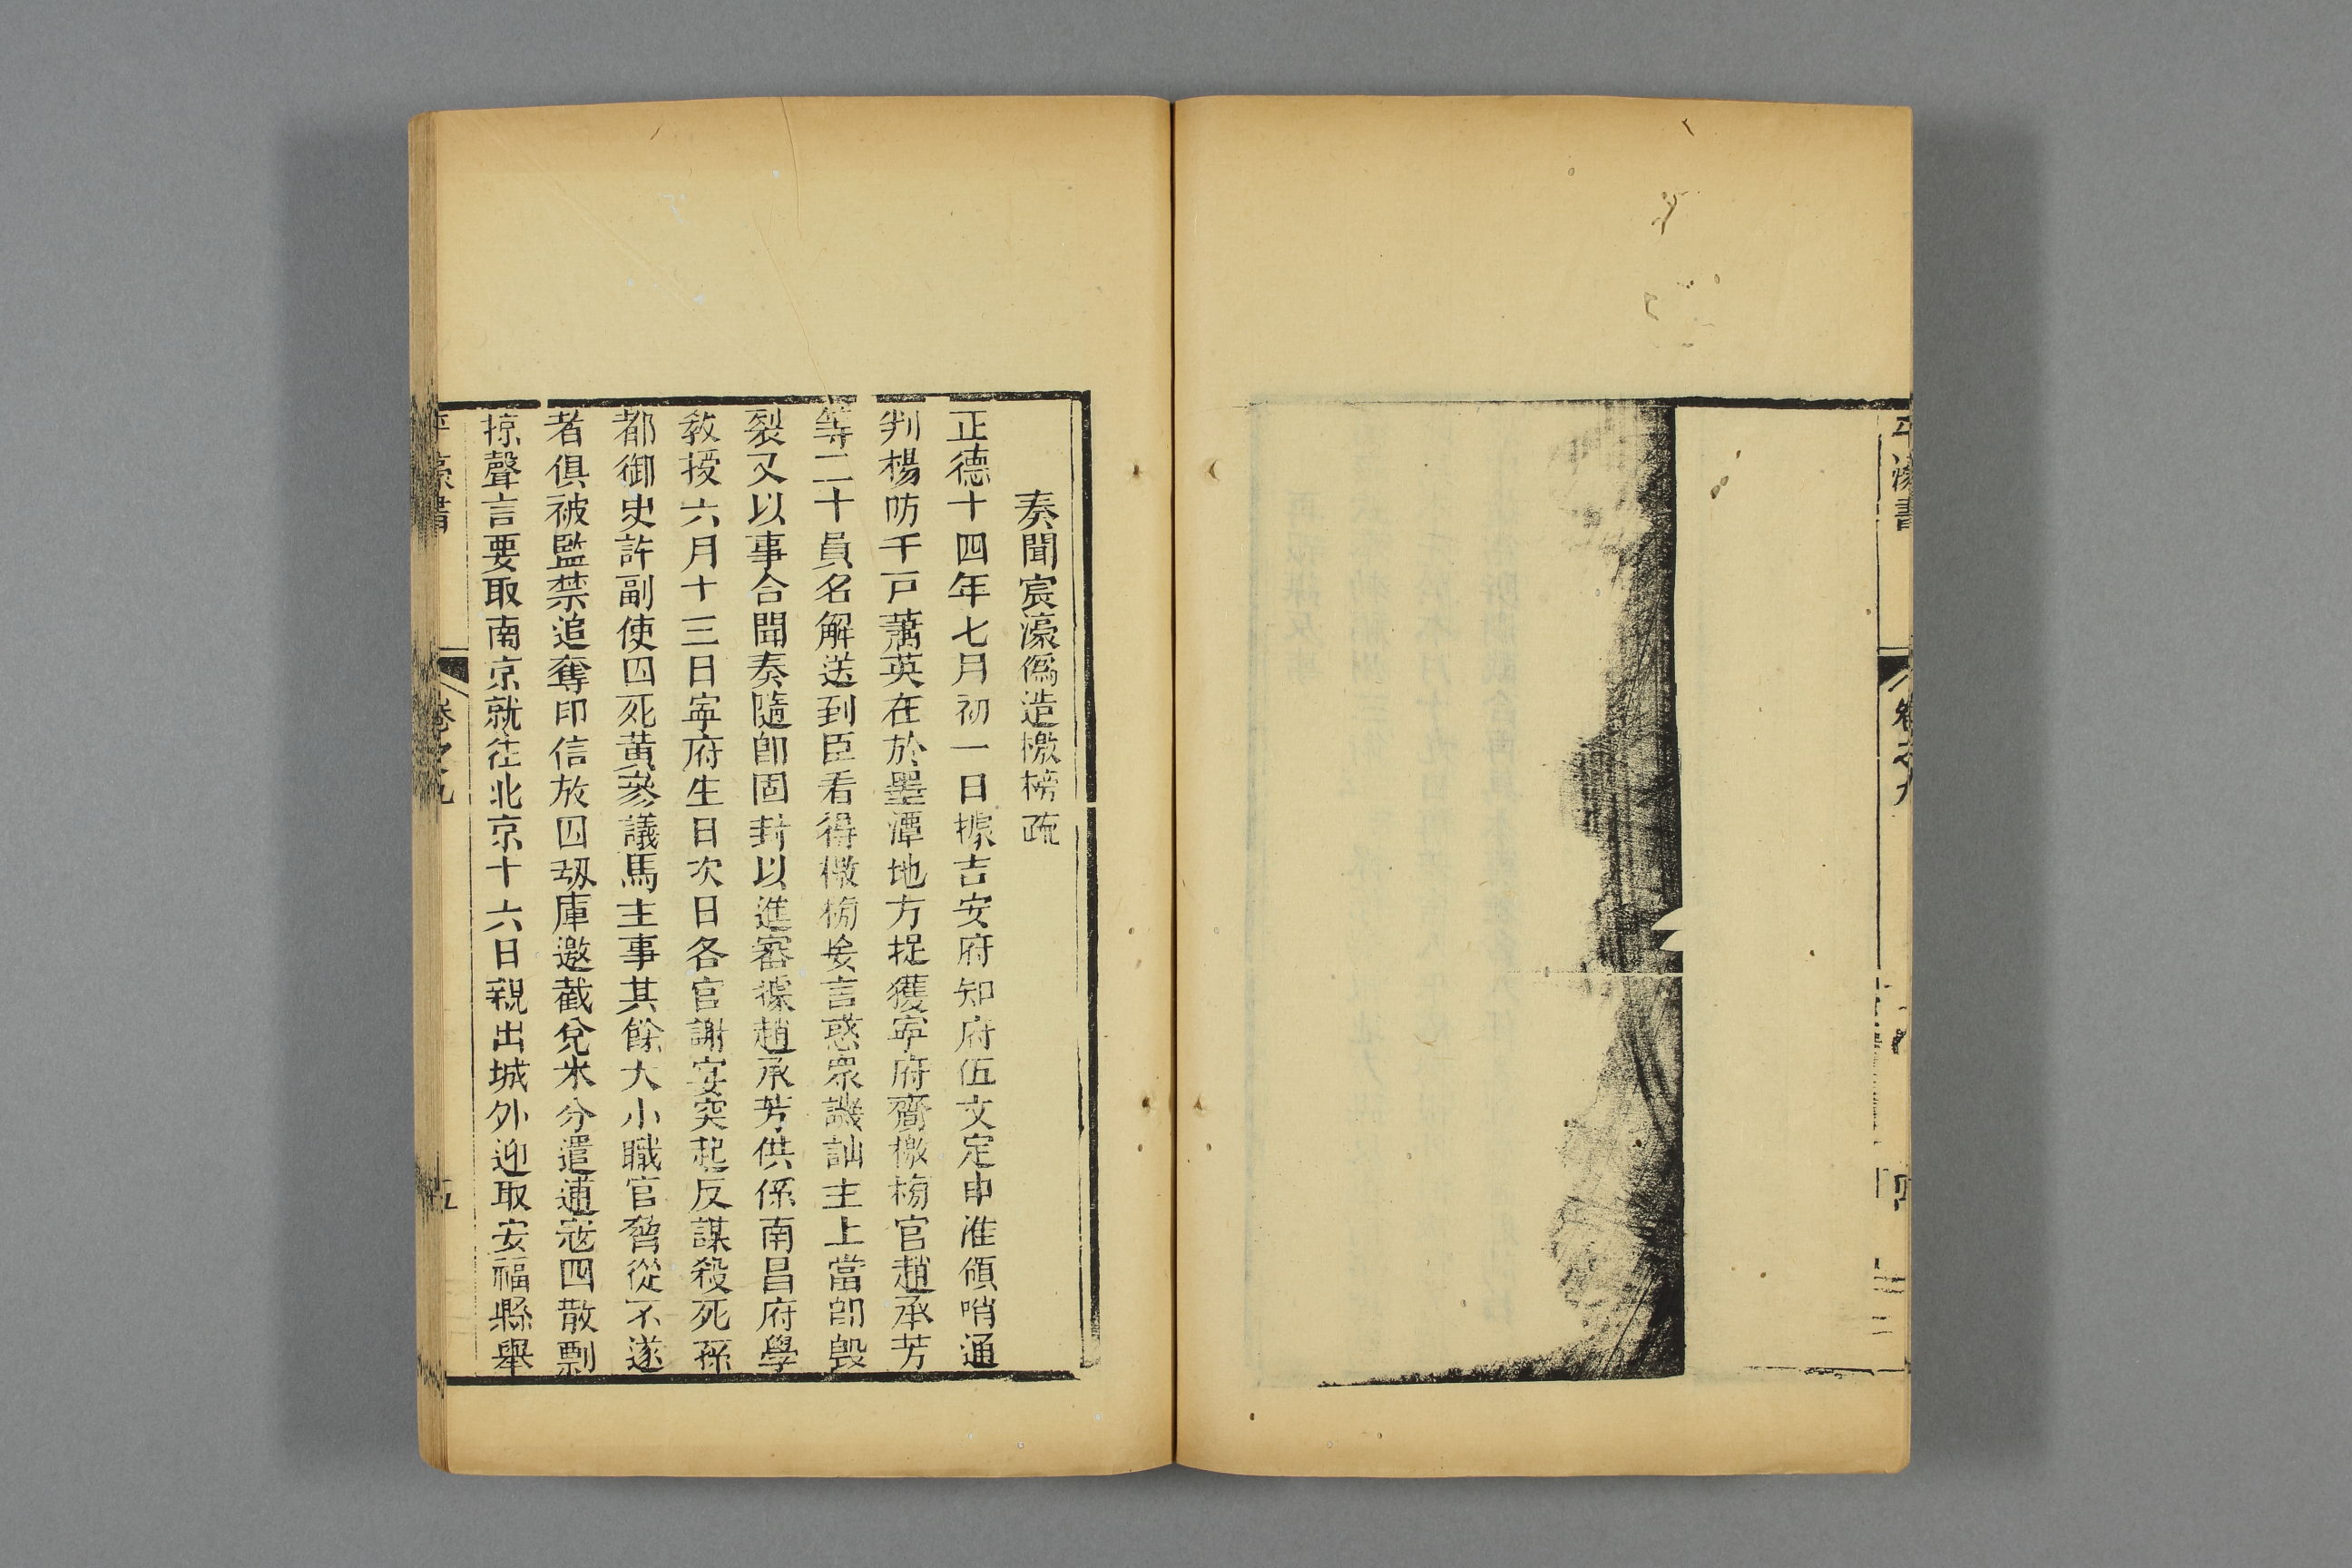 平濠書
卷之九
四
奏聞宸濠僞造檄榜疏
正德十四年七月初一日據吉安府知府伍文定申准領哨通
判楊昉千戶蕭英在於墨潭地方捉獲寧府齎檄榜官趙承芳
等二十員名解送到臣看得檄榜妄言惑衆譏訕主上當卽毀
裂又以事合聞奏隨卽固封以進審據趙承芳供係南昌府學
教授六月十三日寧府生日次日各官謝宴突起反謀殺死孫
都御史許副使囚死黃參議馬主事其餘大小職官脅從不遂
者俱被監禁追奪印信放囚刼庫邀截兌米分遣逋寇四散剽
掠聲言要取南京就往北京十六日親出城外迎取安福縣舉
平濠書
卷之九
五